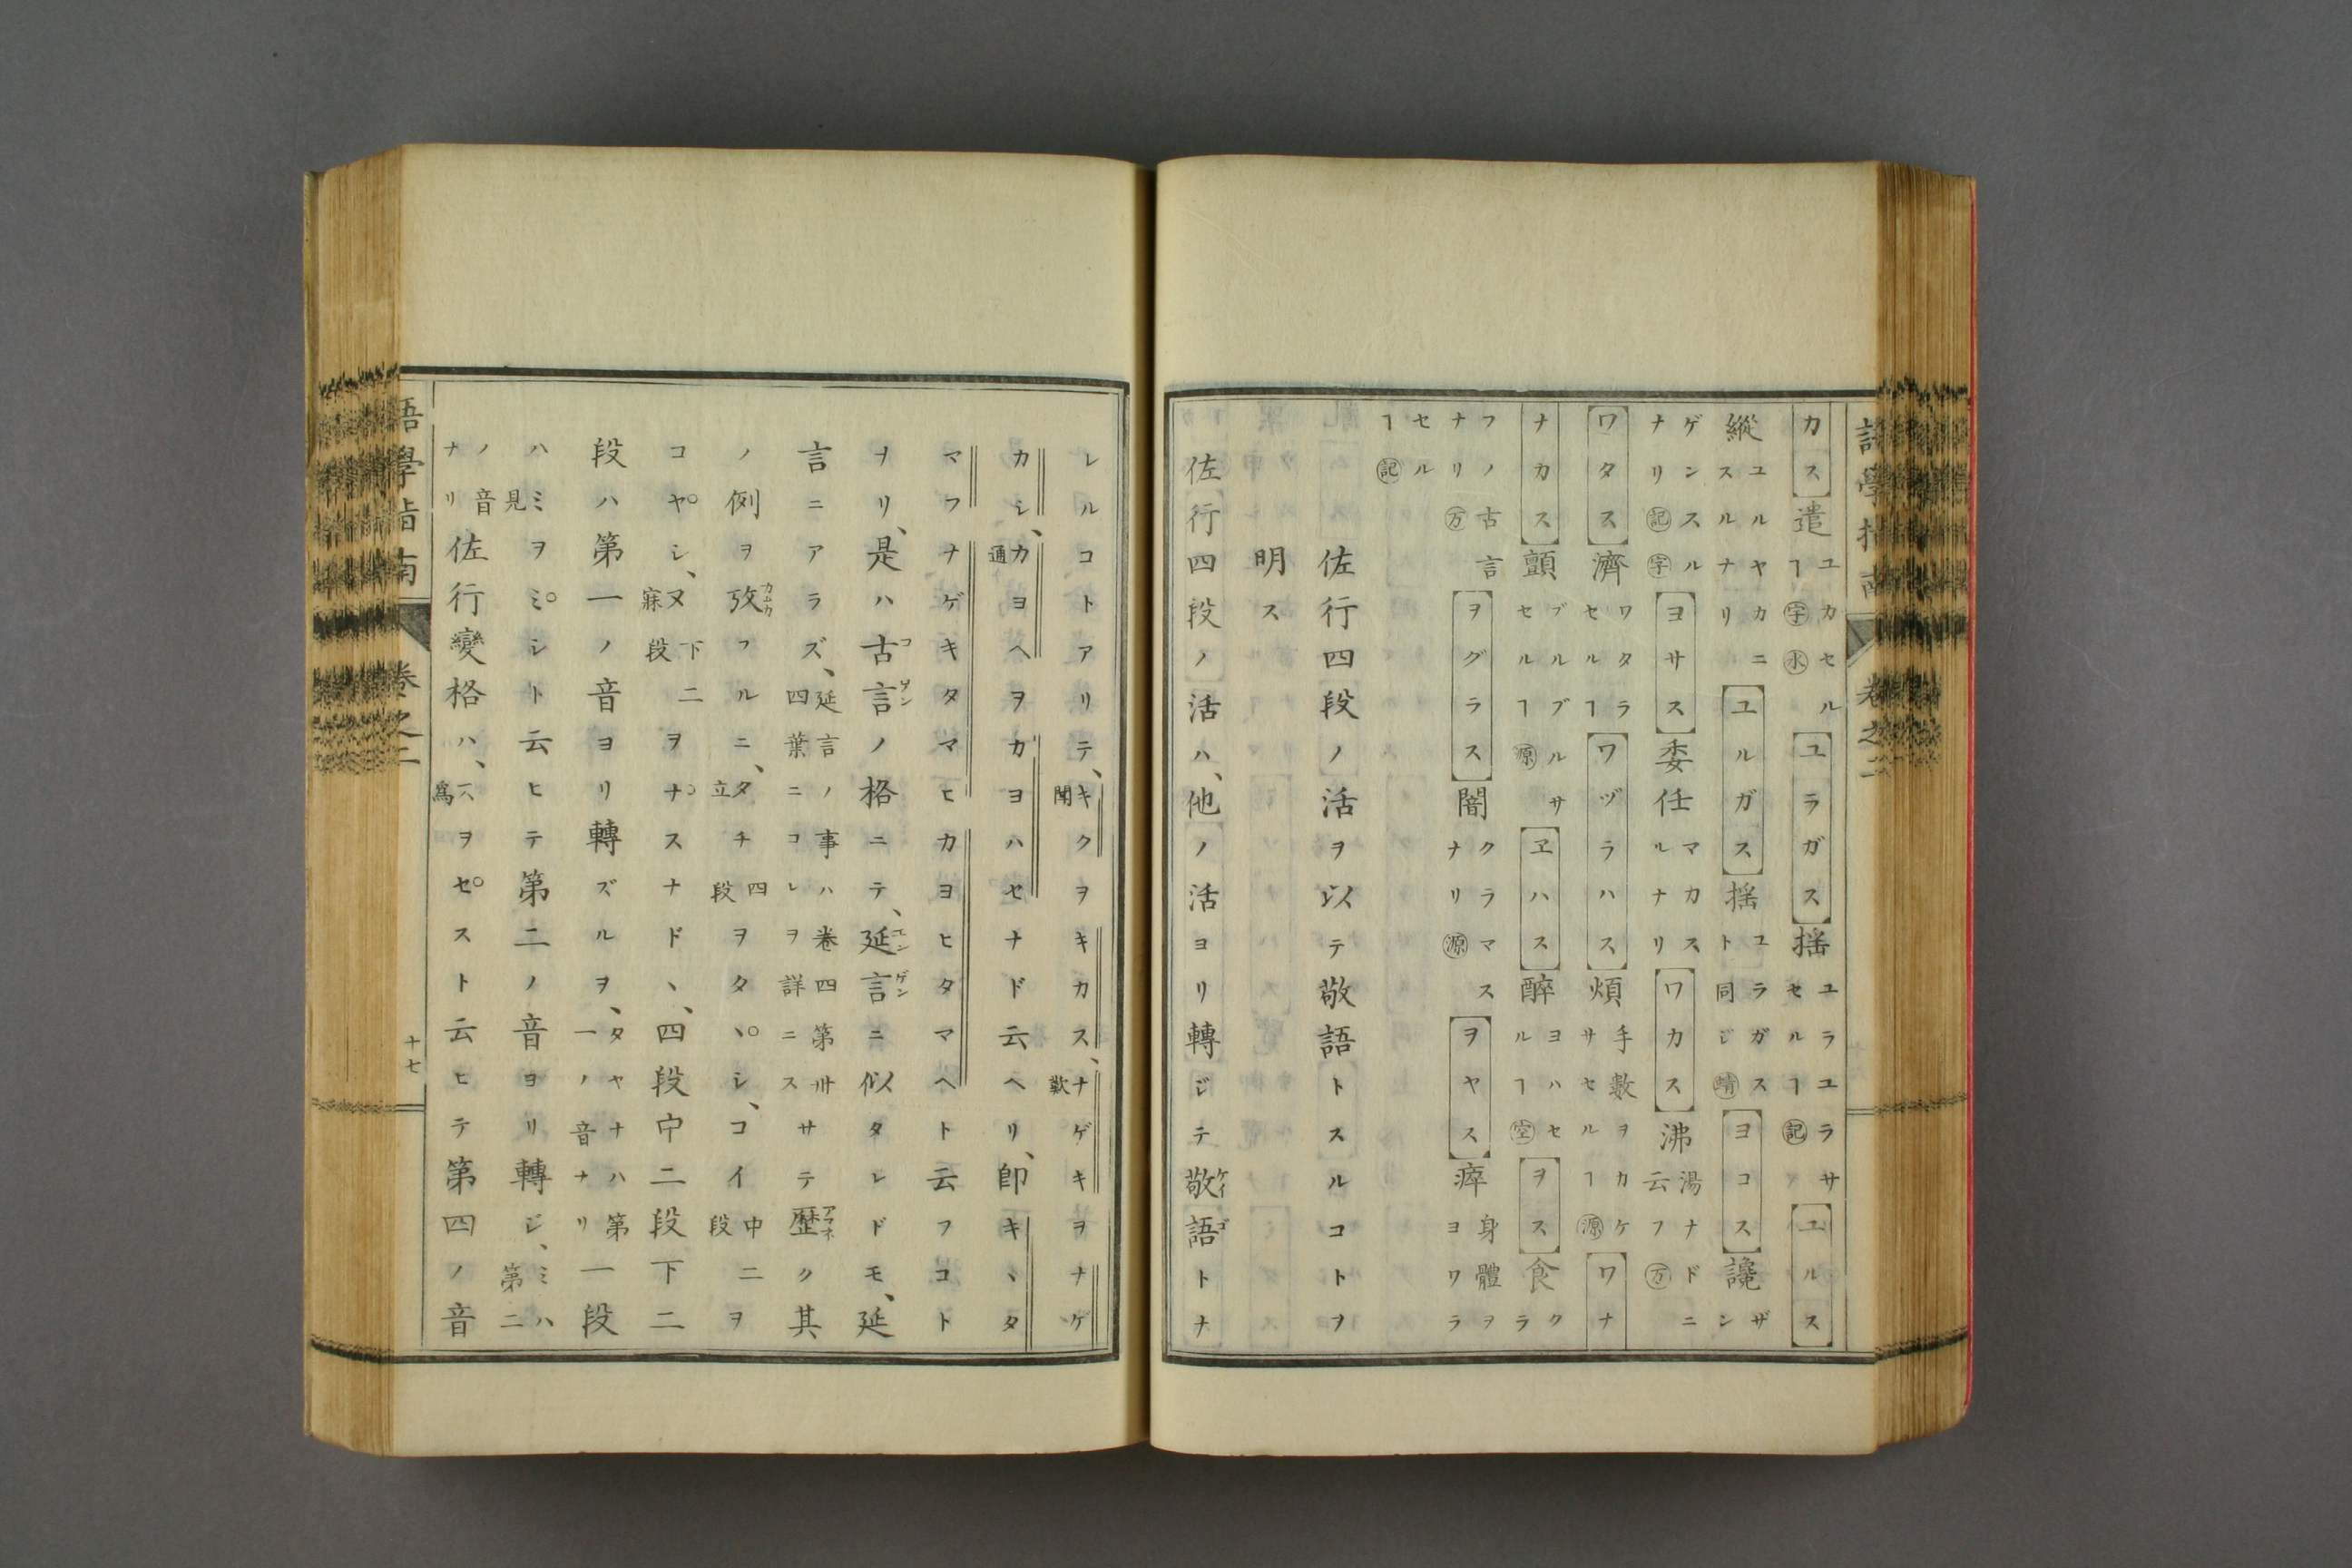 語學指南 卷之二
カス 遣 ユカセルヿ字水 ユラガス 搖 ユラユラサセルヿ記 ユルス
縱 ユルヤカニスルナリ ユルガス 搖 ユラガスト同ジ蜻 ヨコス 讒 ザン
ゲンスルナリ記字 ヨサス 委任 マカスルナリ ワカス 沸 湯ナドニ云フ万
ワタス 濟 ワタラセルヿ ワヅラハス 煩 手數ヲカケサセルヿ源 ワナ
ナカス 顫 ブルブルサセルヿ源 ヱハス 醉 ヨハセルヿ空 ヲス 食 クラ
フノ古言ナリ万 ヲグラス 闇 クラマスナリ源 ヲヤス 瘁 身體ヲヨワラ
セルヿ記
佐行四段ノ活ヲ以テ敬語トスルコトヲ
明ス
佐行四段ノ活ハ、他ノ活ヨリ轉ジテ敬語トナ
レルコトアリテ、キク聞ヲキカス、ナゲキ歎ヲナゲ
カシ、カヨヘ通ヲカヨハセナド云ヘリ、卽キヽタ
マフナゲキタマヒカヨヒタマヘト云フコト
ナリ、是ハ古言ノ格ニテ、延言ニ似タレドモ、延
言ニアラズ、延言ノ事ハ卷四第卅四葉ニコレヲ詳ニス サテ歴ク其
ノ例ヲ攷フルニ、タチ立四段ヲタヽシ、コイ中二段ヲ
コヤシ、ヌ寐下二段ヲナスナドヽ、四段中二段下二
段ハ第一ノ音ヨリ轉ズルヲ、タヤナハ第一ノ音ナリ 一段
ハミ見ヲミシト云ヒテ第二ノ音ヨリ轉ジ、ミハ第二
ノ音ナリ 佐行變格ハ、ス爲ヲセスト云ヒテ第四ノ音
語學指南 卷之二 十七